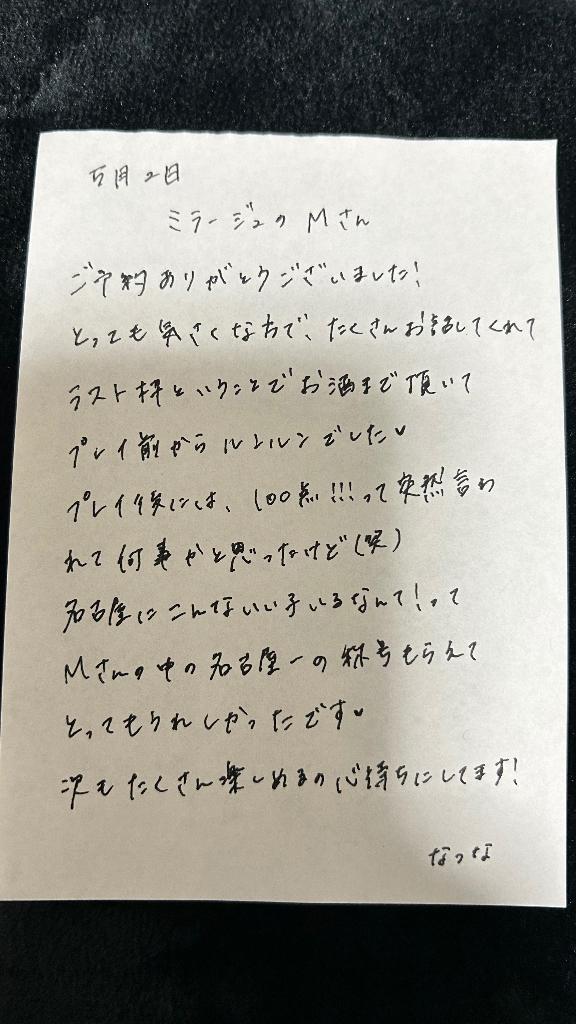 5月2日
ミラージュの Mさん
ご予約ありがとうございました!
とっても気さくな方で、たくさんお話してくれて
ラスト枠ということでお酒まで頂いて
プレイ前からルンルンでした♥
プレイ後には、100点!!!って突然言わ
れて何事かと思ったけど(笑)
名古屋にこんないい子いるなんて!って
Mさんの中の名古屋一の称号もらえて
とってもうれしかったです♥
次もたくさん楽しめるの心待ちにしてます!
なつな